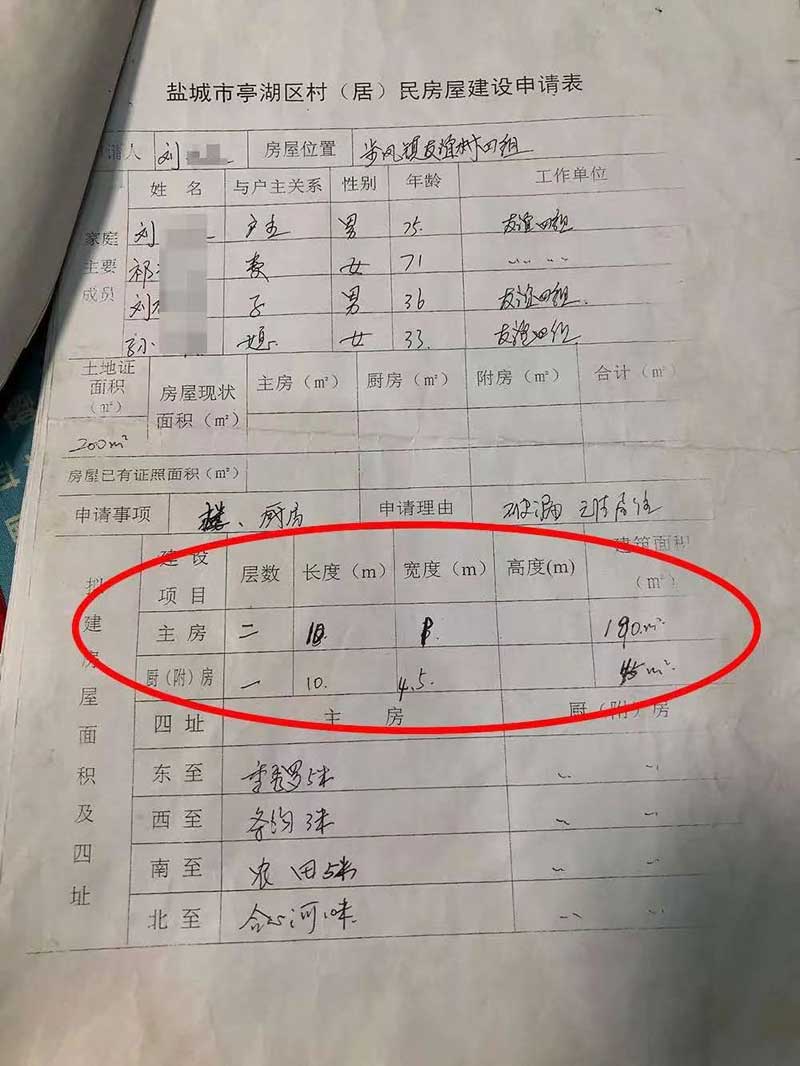 盐城市亭湖区村（居）民房屋建设申请表
请人 刘 房屋位置 步凤镇友谊村四组
姓 名 与户主关系 性别 年龄 工作单位
家庭主要成员
刘 户主 男 75. 友谊四组
祁 妻 女 71 〃 〃
刘 子 男 36 友谊四组.
孙 媳. 女 33. 友谊四组
土地证面积（㎡） 房屋现状面积（㎡） 主房（㎡） 厨房（㎡） 附房（㎡） 合计（㎡）
200㎡
房屋已有证照面积（㎡）
申请事项 楼、厨房 申请理由
拟建房屋面积及四址
建设项目 层数 长度（m） 宽度（m） 高度(m) 建筑面积（㎡）
主房 二 190㎡
厨（附）房 一 10. 4.5. 45㎡
四址 主 房 厨（附）房
东至 5米 〃 〃
西至 3米 〃 〃
南至 农田5米 〃 〃
北至 河 〃 〃